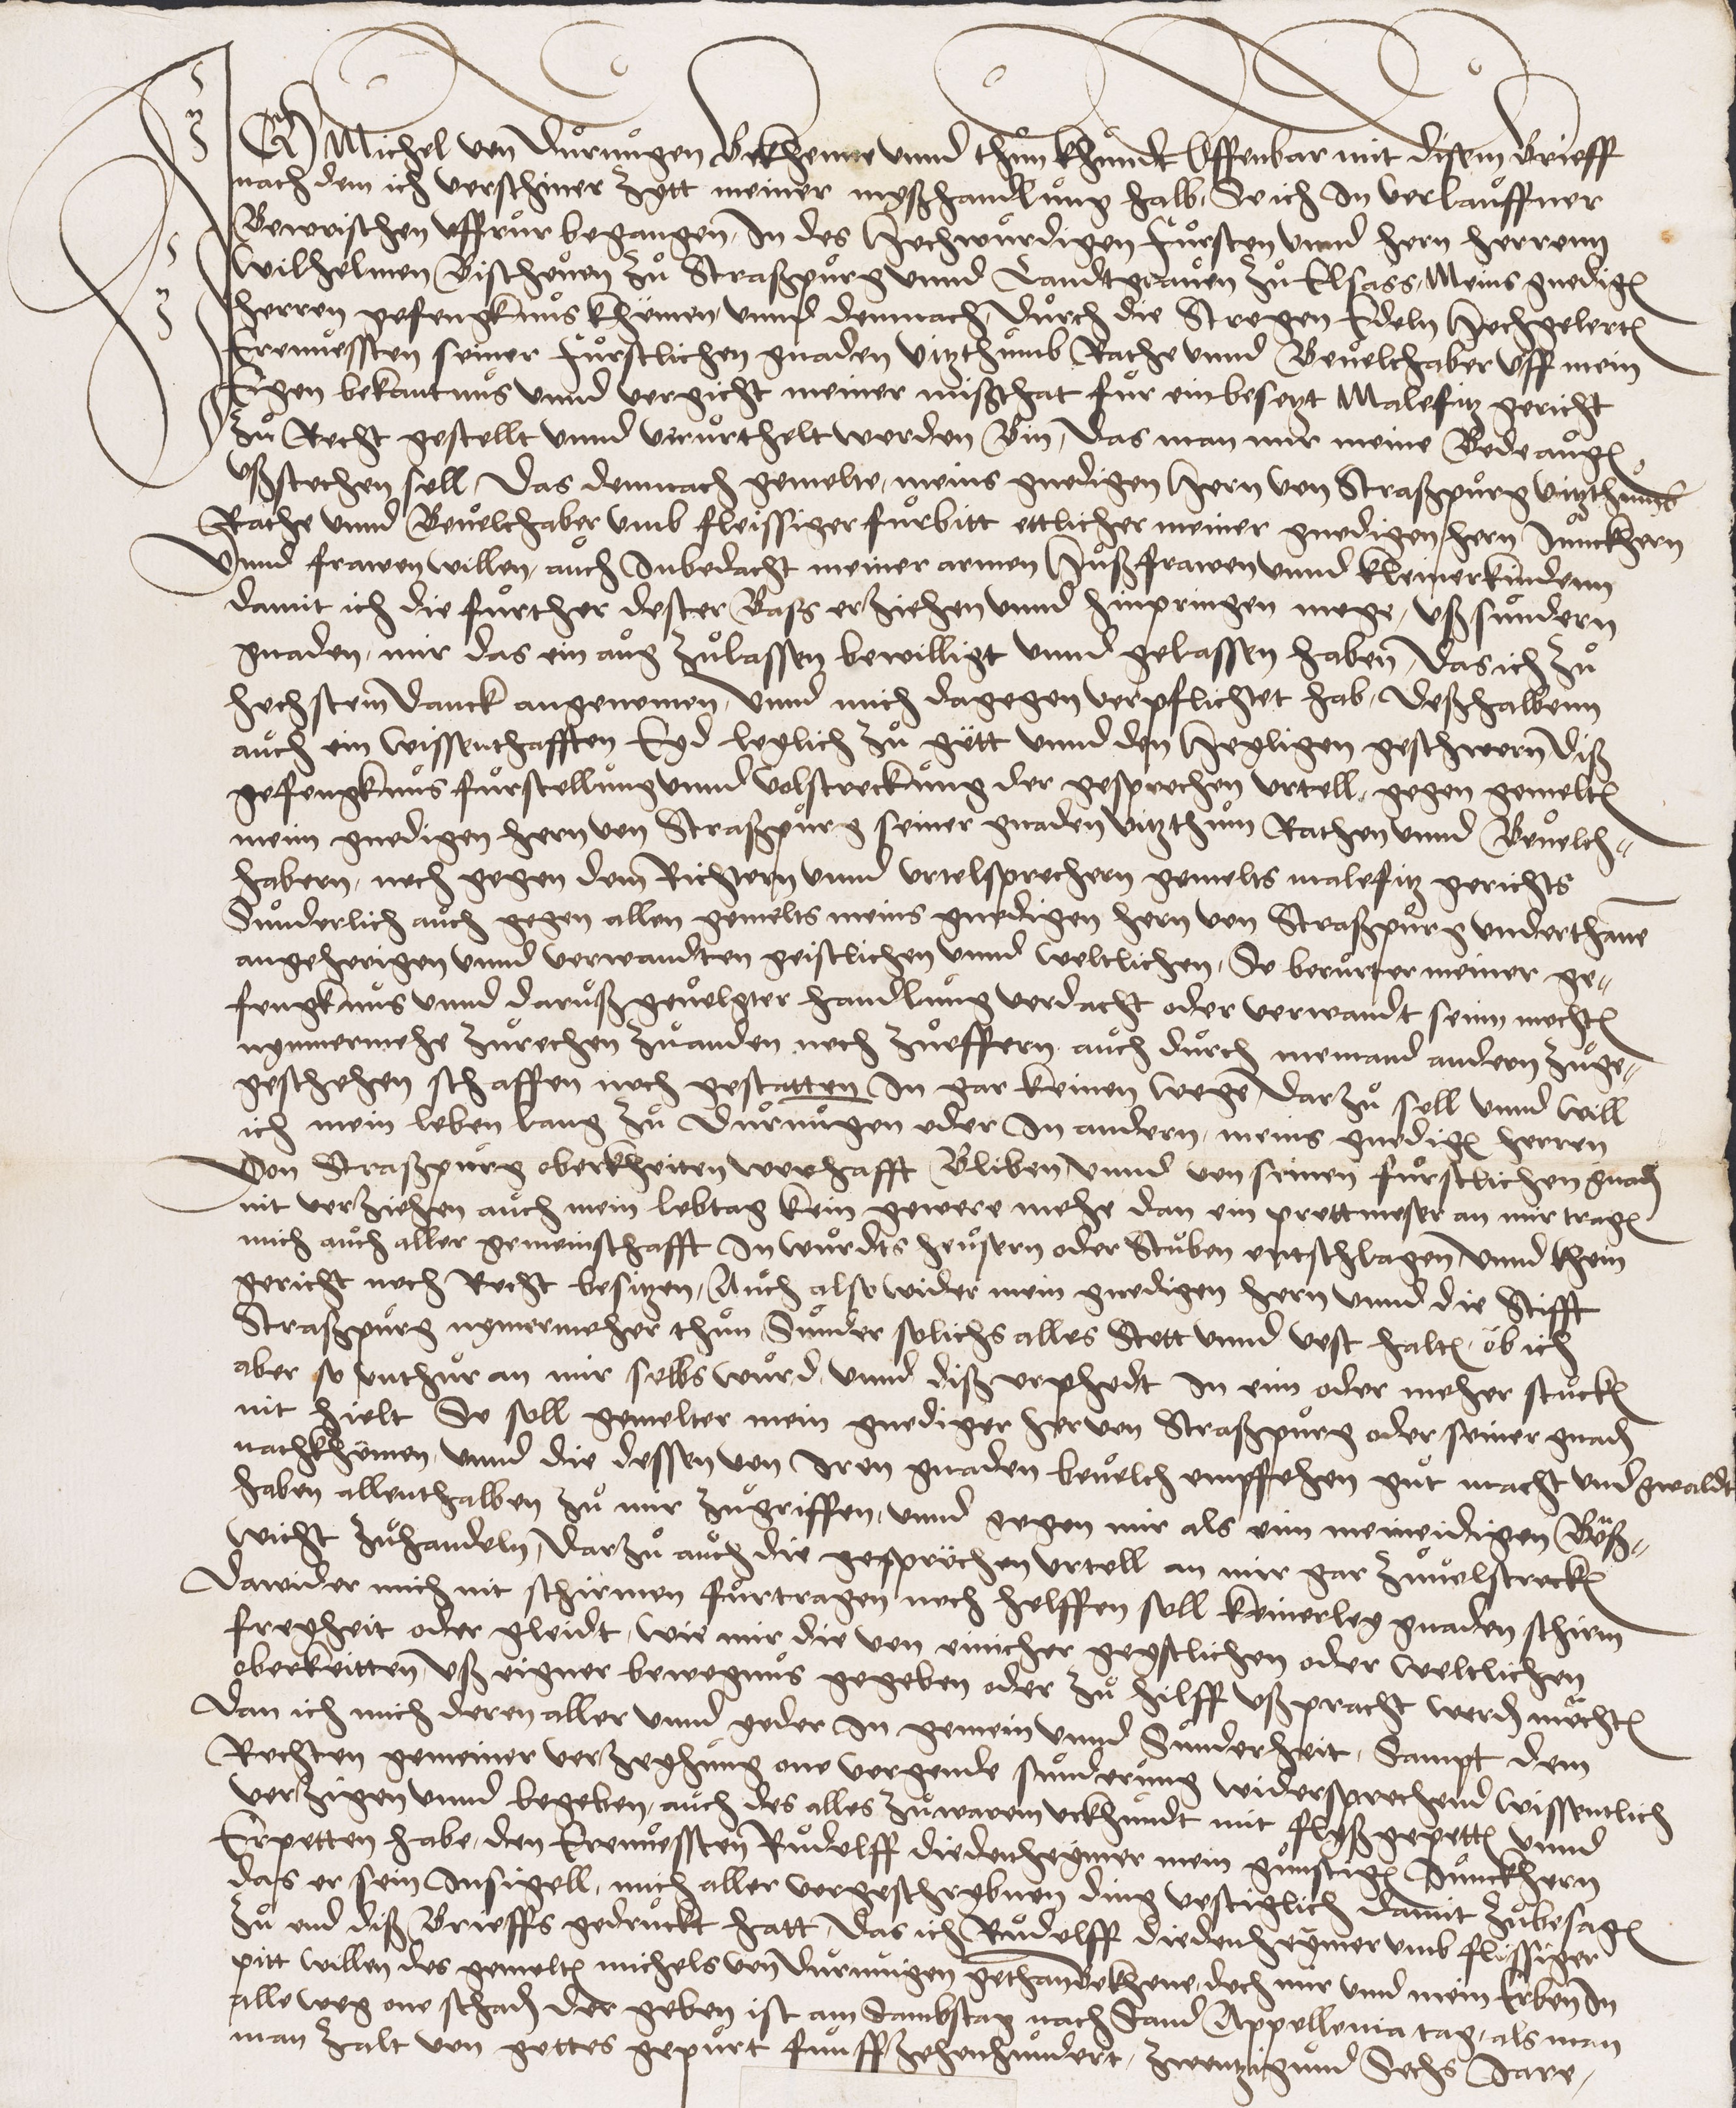 Ich Michel von Durnŭgen Bekhenne vnnd thŭn khŭndt Offenbar mit disem Brieff
nach dem ich verschiner Zytt meiner myßhandlŭng halb, So ich In verlaŭffner
Bewrischen vffrŭr begangen, In des Hochwŭrdigen Fŭrsten vnnd hern herrenn
Wilhelmen Bischouen Zŭ Straßpŭrg vnnd Landtgrauen Zŭ Elsass, Meins gnedigen
herren gefengknŭs khomen, vnnd demnach Dŭrch die Strengen Edeln Hochgelerten
Erenuessten seiner Fŭrstlichen gnaden Vitzthŭmb Rathe vnnd Beuelchaber vff mein
Eigen bekantnŭs vnnd vergicht meiner mißthat fŭr ein besetzt Malefitz gericht
Zŭ Recht gestellt vnnd verŭrthelt worden Bin, Das man mir meine Bede aŭgen
vßstechen soll, Das demnach gemelte, meins gnedigen Hern von Straßpŭrg Vitzthumb
Rathe vnnd Beuelchaber vmb fleissiger fŭrbitt ettlicher meiner gnedigen hern Jŭnckhern
Vnnd frawen willen, aŭch Inbedacht meiner armen Hŭßfrawen vnnd kleiner kindenn
damit ich die fŭrther dester Bass erziehen vnnd hinpringen moge, vß sŭndern
gnaden, mir das ein aŭg Zŭlassen bewilligt vnnd gelassen haben, Das ich Zŭ
hochstem Danck angenomen, Vnnd mich dagegen verpflichtet hab, Deßhalbenn
aŭch ein Wissenthafften Eyd leylich Zŭ gott vnnd den Heyligen geschworn Diß
gefengknŭs fŭrstellŭng vnnd Volstreckŭng der gesprochen vrtell, gegen gemelten
meim gnedigen hern von Straßpŭrg seiner gnaden Vitzthŭm Rathen vnnd Beuelch-
habern, noch gegen dem Richtern vnnd vrtelsprechern gemelts malefitz gerichts
Sŭnderlich aŭch gegen allen gemelts meins gnedigen hern von Straßpŭrg vnderthane
angehorigen vnnd verwandten geistlichen vnnd weltlichen, So berŭrter meiner ge-
fengknŭs vnnd darŭß geuolgter handlŭng verdacht oder verwandt seinn mochten
nymmermehe Zŭrechen Zŭanden noch Zŭeffern aŭch dŭrch niemand andern Zŭge-
geschehen schaffen noch gestatten In gar keinen wege, Darzŭ soll vnnd will
ich mein leben lang Zŭ Dŭrnŭgen oder In andern, meins gnedigen herren
Von Straßpŭrg oberkheiten werhafft Bliben, vnnd von seinen fŭrstlichen gnaden
nit verziehen aŭch mein lebtag kein gewere mehe dan ein prottmeser an mir tragen
mich aŭch aller gemeinschafft In wŭrdts heŭsern oder Stŭben entschlagen, Vnnd khein
gericht noch Recht besitzen, Aŭch also wider mein gnedigen hern vnnd die Stifft
Straßpŭrg nymermeher thŭn, Sŭnder solichs alles Stett vnnd vest halten, ob ich
aber so vnthŭr an mir selbs wŭrd, vnnd diß vrphedt In eim oder meher stŭcken
nit hielt So soll gemelter mein gnediger her von Straßpŭrg oder seiner gnaden
nachkhomen, Vnnd die dessen von Iren gnaden beuelch empfehen gŭt macht vnd gwaldt
haben allenthalben Zŭ mir Zŭgriffen, vnnd gegen mir als eim meineidigen Böß-
wicht Zŭhandeln, Darzŭ aŭch die gesprochen vrtell an mir gar Zŭuolstrecken
Dawider mich nit schirmen fŭrtragen noch helffen soll keinerley gnaden schirm
freyheit oder gleidt, wie mir die von einicher geystlichen oder weltlichen
oberkeitten, vß eigner bewegnŭs gegeben oder Zŭ hilff vßpracht werden möchten
Dan ich mich deren aller vnnd yeder In gemein vnnd Sŭnderheit, Sampt dem
Rechten gemeiner verzeyhŭng one vorgende sŭnderŭng widersprechend wissentlich
verzigen vnnd begeben, aŭch des alles Zŭ warem vrkhŭndt mit flyß gepetten vnnd
Erpetten habe, den Erenuessten Rŭdolff Diedenheymer mein gŭnstigen Jŭnckhern
das er sein Insigell, mich aller vorgeschrybnen ding vestiglich damit Zŭbesagen
Zŭ end diß Brieffs gedrŭckt hatt, Das ich Rŭdolff Diedenheymer vmb flissiger
pitt willen des gemelten michels von Dŭrnŭngen gethan Bekhene, doch mir vnd mein Erben In
alle weg one schaden Der geben ist am Sambstag nach Sand Appellonia tag, als man
man Zalt von gottes gepŭrt fŭnffzehenhŭndert, Zwentzig vnd Sechs Jare,